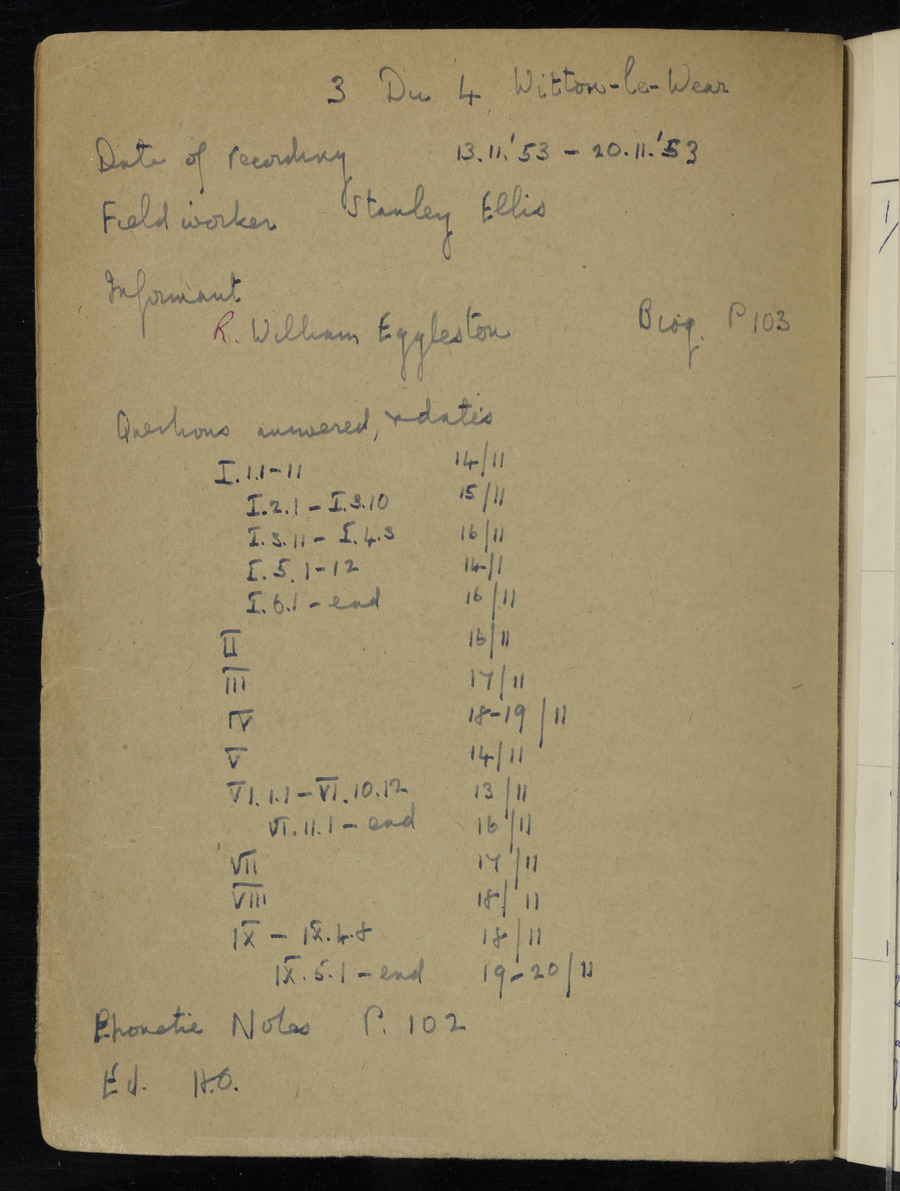 3 Du 4 Witton-le-Wear
Date of recording 13.11.'53 – 20.11.'53
Field worker Stanley Ellis
Informant
R. William Eggleston Biog. P 103
Questions answered, & dates
I.1.1-11 14/11
I.2.1 – I.3.10 15/11
I.3.11 – I.4.3 16/11
I.5.1-12 14/1
I.6.1 – end 16/11
II 16/11
III 17/11
IV 18-19/11
V 14/11
VI.1.1 – VI.10.12 13/11
VI.11.1 – end 16/11
VII 17/11
VIII 18/11
IX – IX.4.8 18/11
IX.5.1 – end 19-20/11
Phonetic Notes P. 102
Ed. H.O.